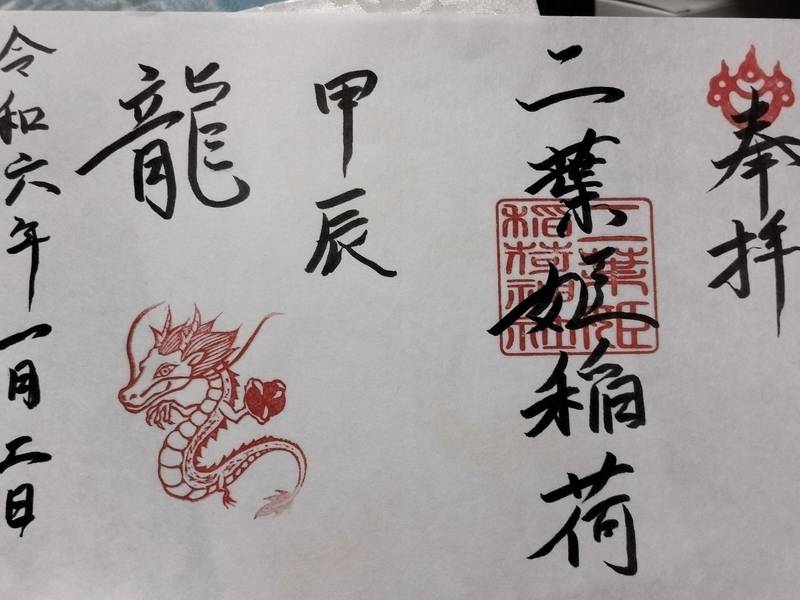 奉拝
二葉姫稲荷
二葉姫
稲荷神社
甲辰
龍
令和六年一月二日